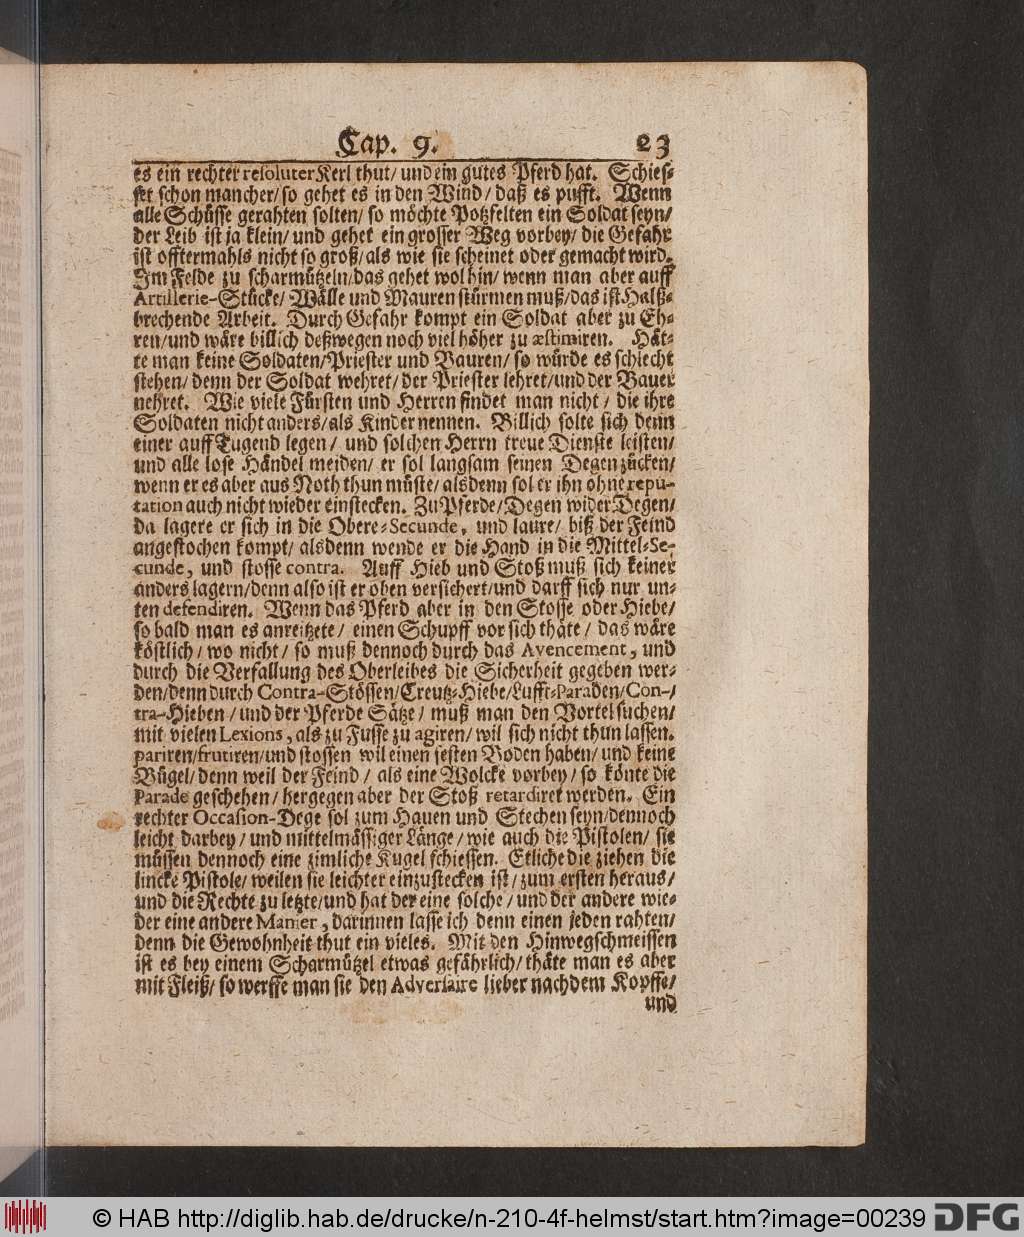 Cap. 9. 23
es ein rechter resoluter Kerl thut/ und ein gutes Pferd hat. Schies-
set schon mancher/ so gehet es in den Wind/ daß es pufft. Wenn
alle Schüsse gerahten solten/ so möchte Potzfelten ein Soldat seyn/
der Leib ist ja klein/ und gehet ein grosser Weg vorbey/ die Gefahr
ist offtermahls nicht so groß/ als wie sie scheinet oder gemacht wird.
Im Felde zu scharmützeln/ das gehet wol hin/ wenn man aber auff
Artillerie-Stücke/ Wälle und Mauren stürmen muß/ das ist Halß-
brechende Arbeit. Durch Gefahr kompt ein Soldat aber zu Eh-
ren/ und wäre billich deßwegen noch viel höher zu æstimiren. Hät-
te man keine Soldaten/ Priester und Bauren/ so würde es schlecht
stehen/ denn der Soldat wehret/ der Priester lehret/ und der Bauer
nehret. Wie viele Fürsten und Herren findet man nicht/ die ihre
Soldaten nicht anders/ als Kinder nennen. Billich solte sich denn
einer auff Tugend legen/ und solchen Herrn treue Dienste leisten/
und alle lose Händel meiden/ er sol langsam seinen Degen zücken/
wenn er es aber aus Noth thun müste/ alsdenn sol er ihn ohne repu-
tation auch nicht wieder einstecken. Zu Pferde/ Degen wider Degen/
da lagere er sich in die Obere-Secunde, und laure/ biß der Feind
angestochen kompt/ alsdenn wende er die Hand in die Mittel-Se-
cunde, und stosse contra. Auff Hieb und Stoß muß sich keiner
anders lagern/ denn also ist er oben versichert/ und darff sich nur un-
ten defendiren. Wenn das Pferd aber in den Stosse oder Hiebe/
so bald man es anreitzete/ einen Schupff vor sich thäte/ das wäre
köstlich/ wo nicht/ so muß dennoch durch das Avencement, und
durch die Verfallung des Oberleibes die Sicherheit gegeben wer-
den/ denn durch Contra-Stössen/ Creutz-Hiebe/ Lufft-Paraden/ Con-/
tra-Hieben/ und der Pferde Sätze/ muß man den Vortel suchen/
mit vielen Lexions, als zu Fusse zu agiren/ wil sich nicht thun lassen.
pariren/ frutiren/ und stossen wil einen festen Boden haben/ und keine
Bügel/ denn weil der Feind/ als eine Wolcke vorbey/ so könte die
Parade geschehen/ hergegen aber der Stoß retardiret werden. Ein
rechter Occasion-Dege sol zum Hauen und Stechen seyn/ dennoch
leicht darbey/ und mittelmässiger Länge/ wie auch die Pistolen/ sie
müssen dennoch eine zimliche Kugel schiessen. Etliche die ziehen die
lincke Pistole/ weilen sie leichter einzustecken ist/ zum ersten heraus/
und die Rechte zu letzte/ und hat der eine solche/ und der andere wie-
der eine andere Manier, darinnen lasse ich denn einen jeden rahten/
denn die Gewohnheit thut ein vieles. Mit den Hinwegschmeissen
ist es bey einem Scharmützel etwas gefährlich/ thäte man es aber
mit Fleiß/ so werffe man sie den Adversaire lieber nach dem Kopffe/
und
© HAB http://diglib.hab.de/drucke/n-210-4f-helmst/start.htm?image=00239 DFG